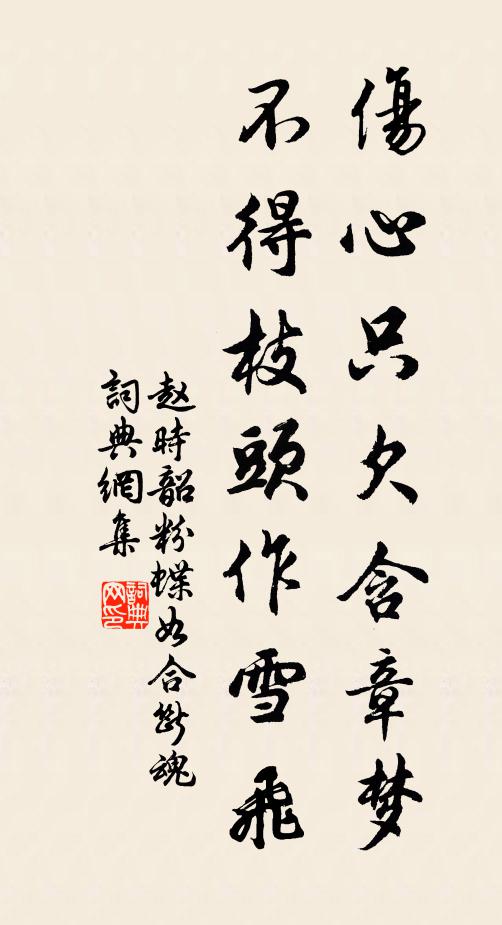 傷心只欠含章梦
不得枝頭作雪飛
赵時韶粉蝶如合斷魂
詞典網集
詞典网印